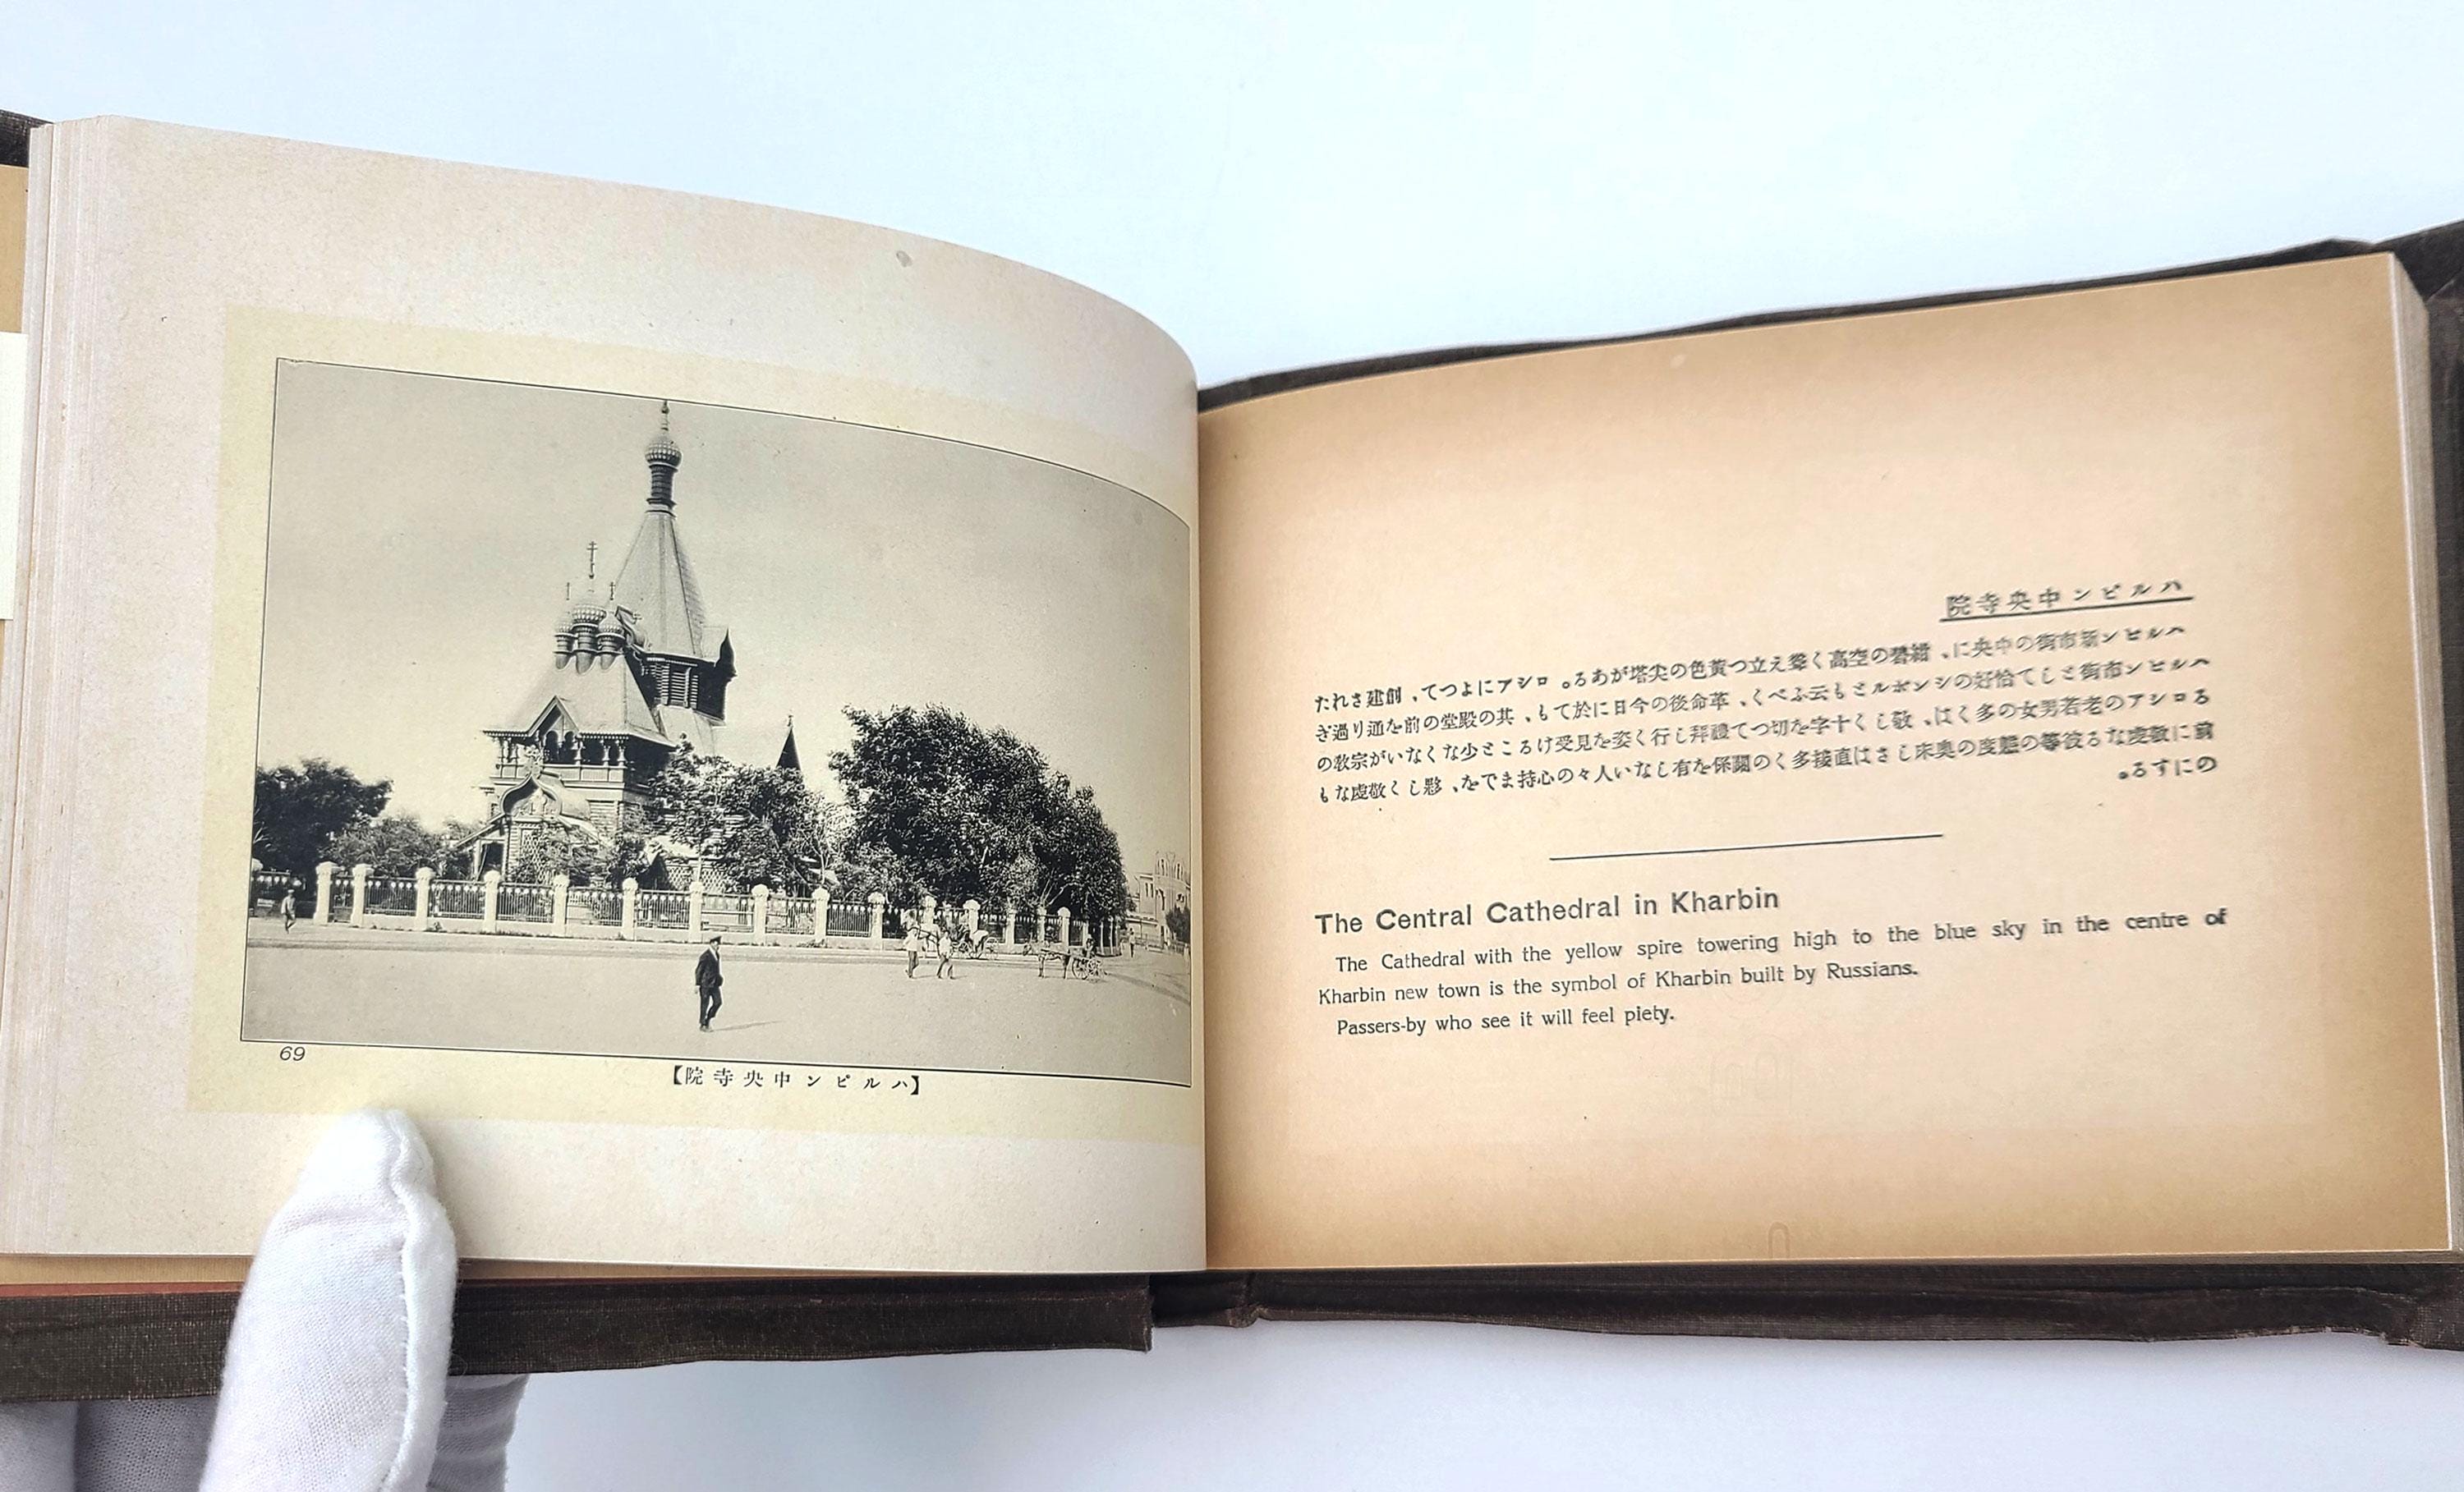 69
【ハルピン中央寺院】
ハルピン中央寺院
ハルピン新市街の中央に、紺碧の空高く聳え立つ黄色の尖塔がある。ロシアによつて、創建された
ハルピン市街として恰好のシンボルとも云ふべく、革命後の今日に於ても、其の殿堂の前を通り過ぎ
るロシアの老若男女の多くは、敬しく十字を切つて禮拜し行く姿を見受けること少なくないが宗敎の
前に敬虔なる彼等の態度の奥床しさは直接多くの關係を有しない人々の心持までを、夥しく敬虔なも
のにする。
The Central Cathedral in Kharbin
The Cathedral with the yellow spire towering high to the blue sky in the centre of
Kharbin new town is the symbol of Kharbin built by Russians.
Passers-by who see it will feel piety.